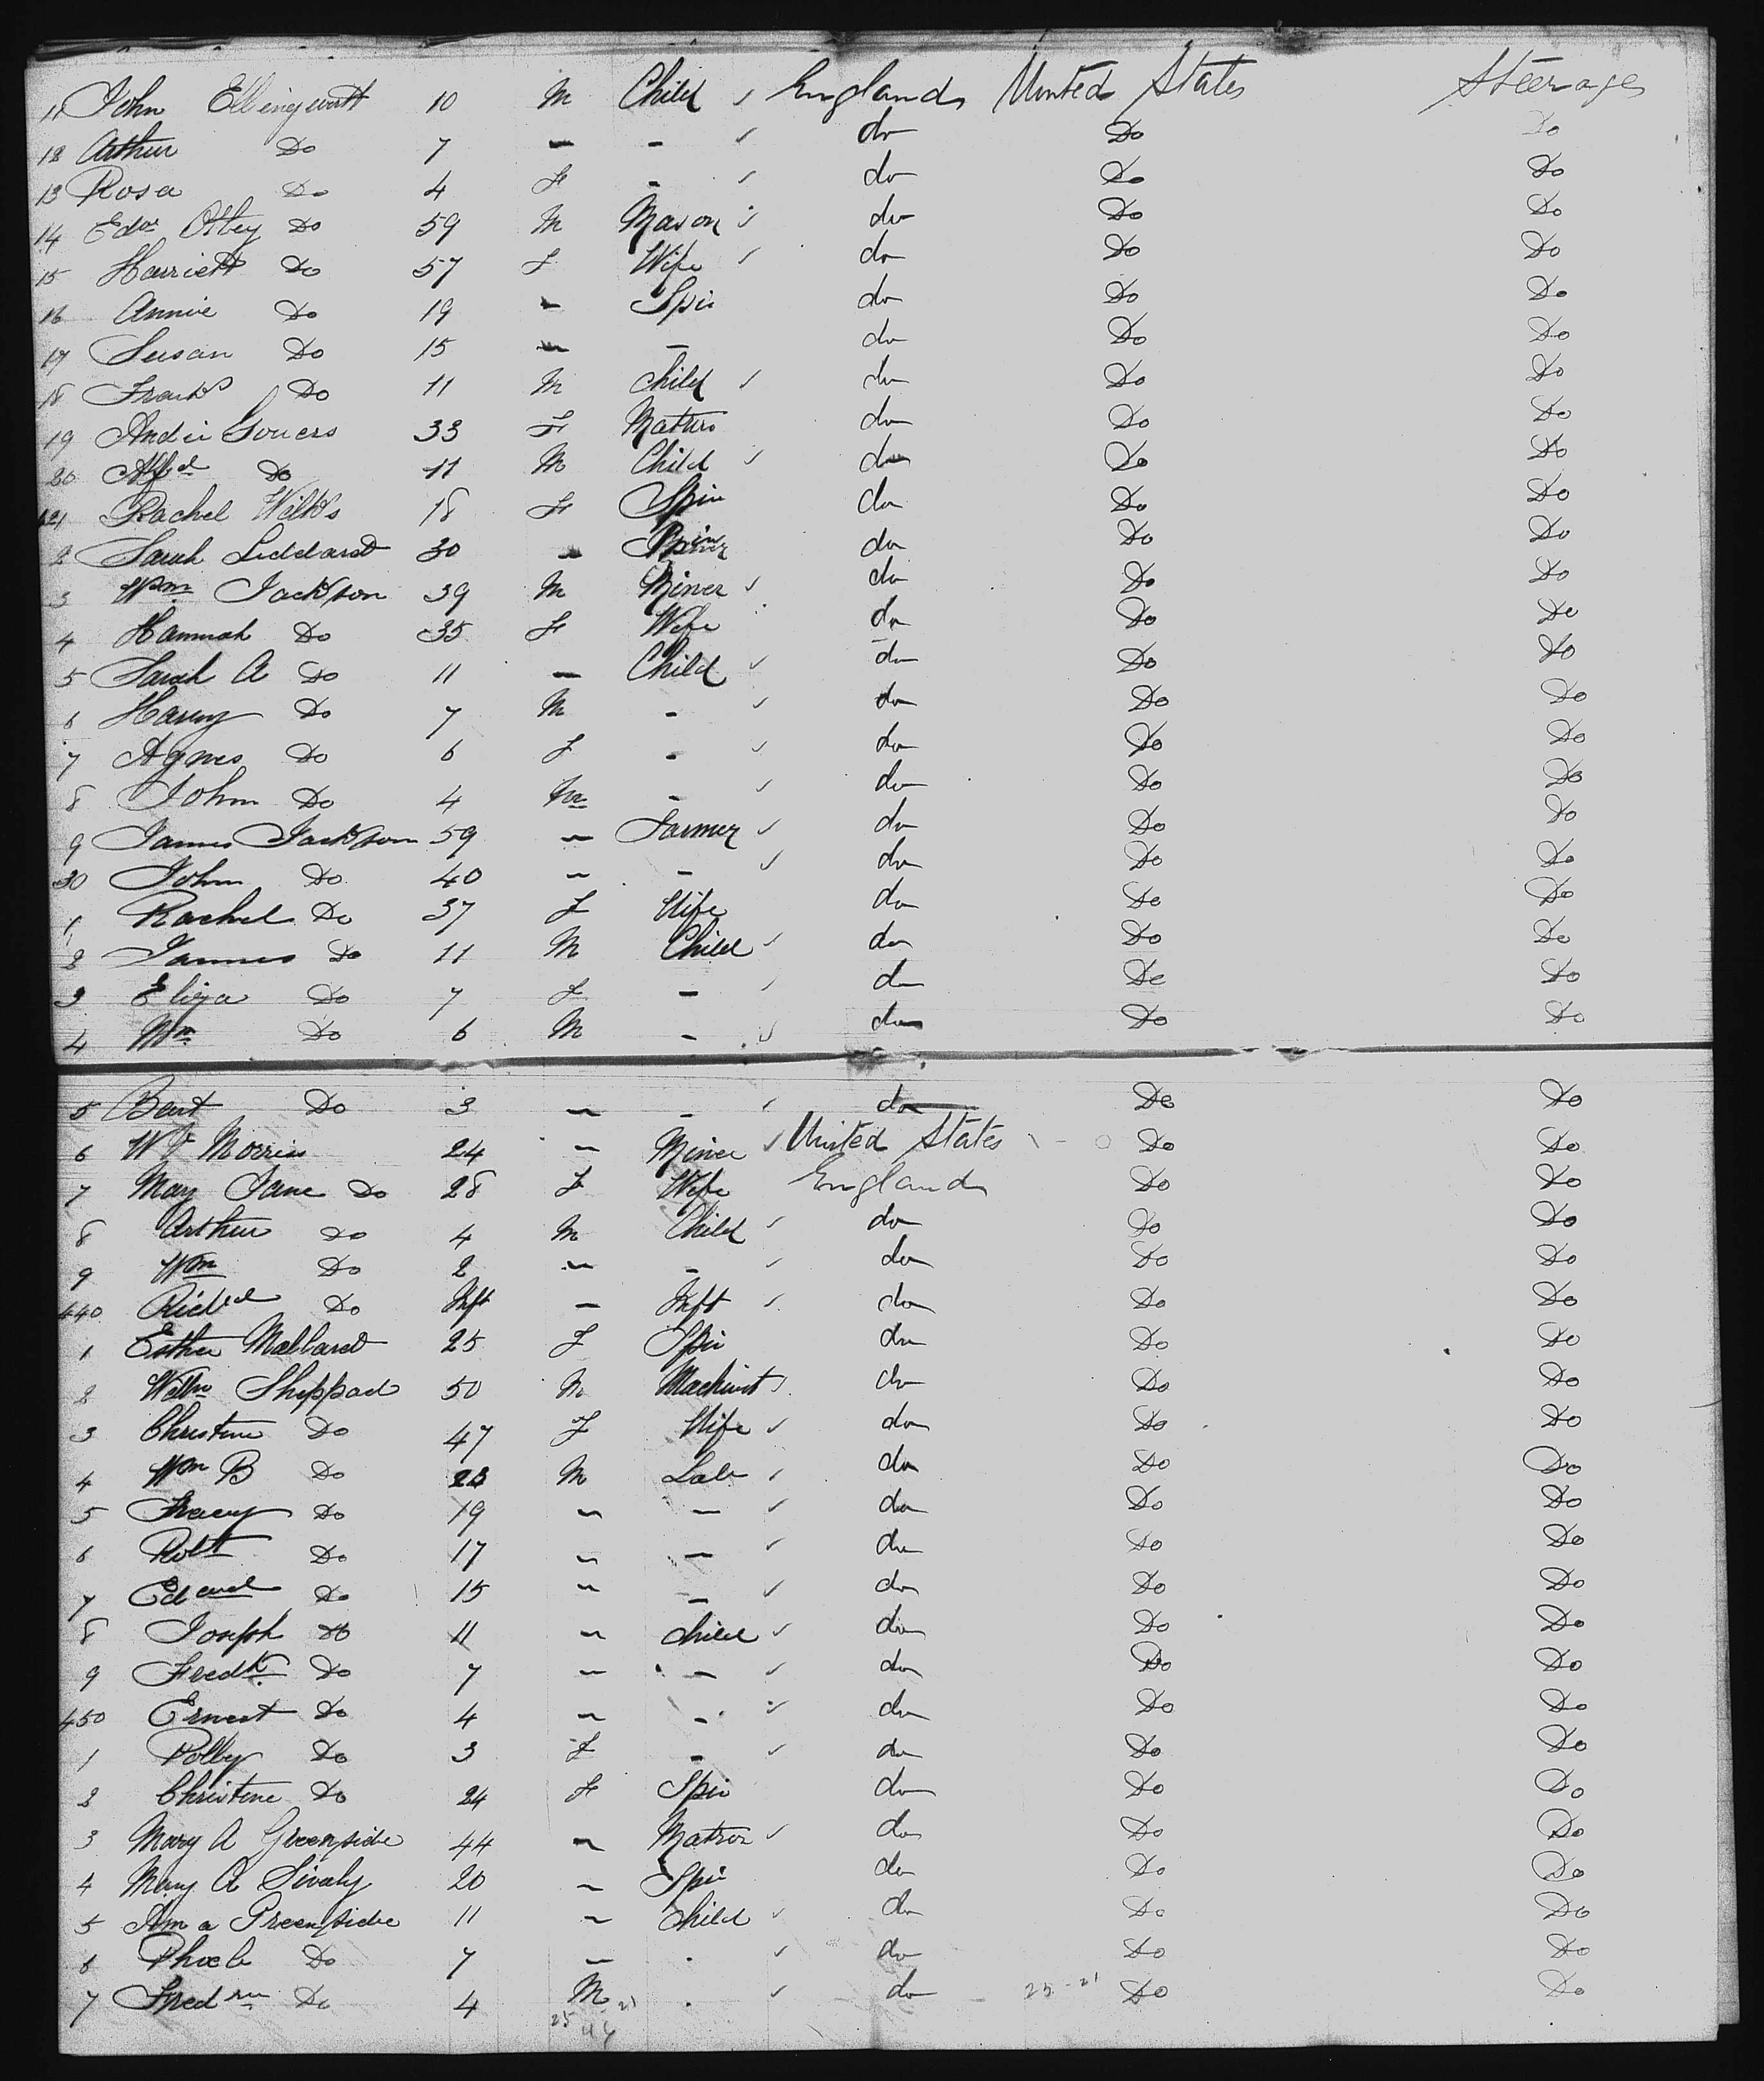 11 John Ellingworth 10 M Child ✓ England United States Steerage
12 Arthur Do 7 — - ✓ do Do Do
13 Rosa Do 4 F - ✓ do Do Do
14 Edw Otley Do 59 M Mason ✓ do Do Do
15 Harriett Do 57 F Wife ✓ do Do Do
16 Annie Do 19 - Spin do Do Do
17 Susan Do 15 — — do Do Do
18 Frank Do 11 M Child ✓ do Do Do
19 33 F Matron do Do Do
20 Alfd Do 11 M Child ✓ do Do Do
421 Rachel Wilks 18 F Spin do Do Do
2 Sarah Liddard 30 - do Do Do
3 Wm Jackson 39 M Miner ✓ do Do Do
4 Hannah Do 35 F Wife do Do Do
5 Sarah A Do 11 — Child ✓ do Do Do
6 Harry Do 7 M - ✓ do Do Do
7 Agnes Do 6 F - ✓ do Do Do
8 John Do 4 M - ✓ do Do Do
9 James Jackson 59 — Farmer ✓ do Do Do
30 John Do 40 — - ✓ do Do Do
1 Rachel Do 37 F Wife do Do Do
2 James Do 11 M Child ✓ do Do Do
3 Eliza Do 7 F — ✓ do Do Do
4 Wm Do 6 M - ✓ do Do Do
5 Bert Do 3 — - ✓ do Do Do
6 Morris 24 — Miner ✓ United States Do Do
7 May Jane Do 28 F Wife England Do Do
8 Arthur Do 4 M Child ✓ do Do Do
9 Wm Do 2 — - ✓ do Do Do
440 Richd Do Inft — Inft ✓ do Do Do
1 Esther Mallard 25 F Spin do Do Do
2 Willm Sheppad 50 M Machinist do Do Do
3 Christine Do 47 F Wife ✓ do Do Do
4 Wm B Do 23 M Lab ✓ do Do Do
5 Do 19 — — ✓ do Do Do
6 Robt Do 17 — — ✓ do Do Do
7 Do 15 — — ✓ do Do Do
8 Joseph Do 11 — Child ✓ do Do Do
9 Fredk Do 7 — — ✓ do Do Do
450 Ernest Do 4 — - ✓ do Do Do
1 Polly Do 3 F - ✓ do Do Do
2 Christine Do 24 F Spin do Do Do
3 Mary A Greenside 44 — Matron ✓ do Do Do
4 Mary A 20 — Spin do Do Do
5 Greenside 11 — Child ✓ do Do Do
6 Phoeb Do 7 — . ✓ do Do Do
7 Do 4 M . ✓ do 25-21 Do Do
25 21